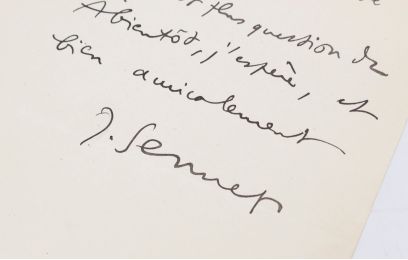 plus question de
A bientôt, j'espère, et
bien amicalement
J. Sennep